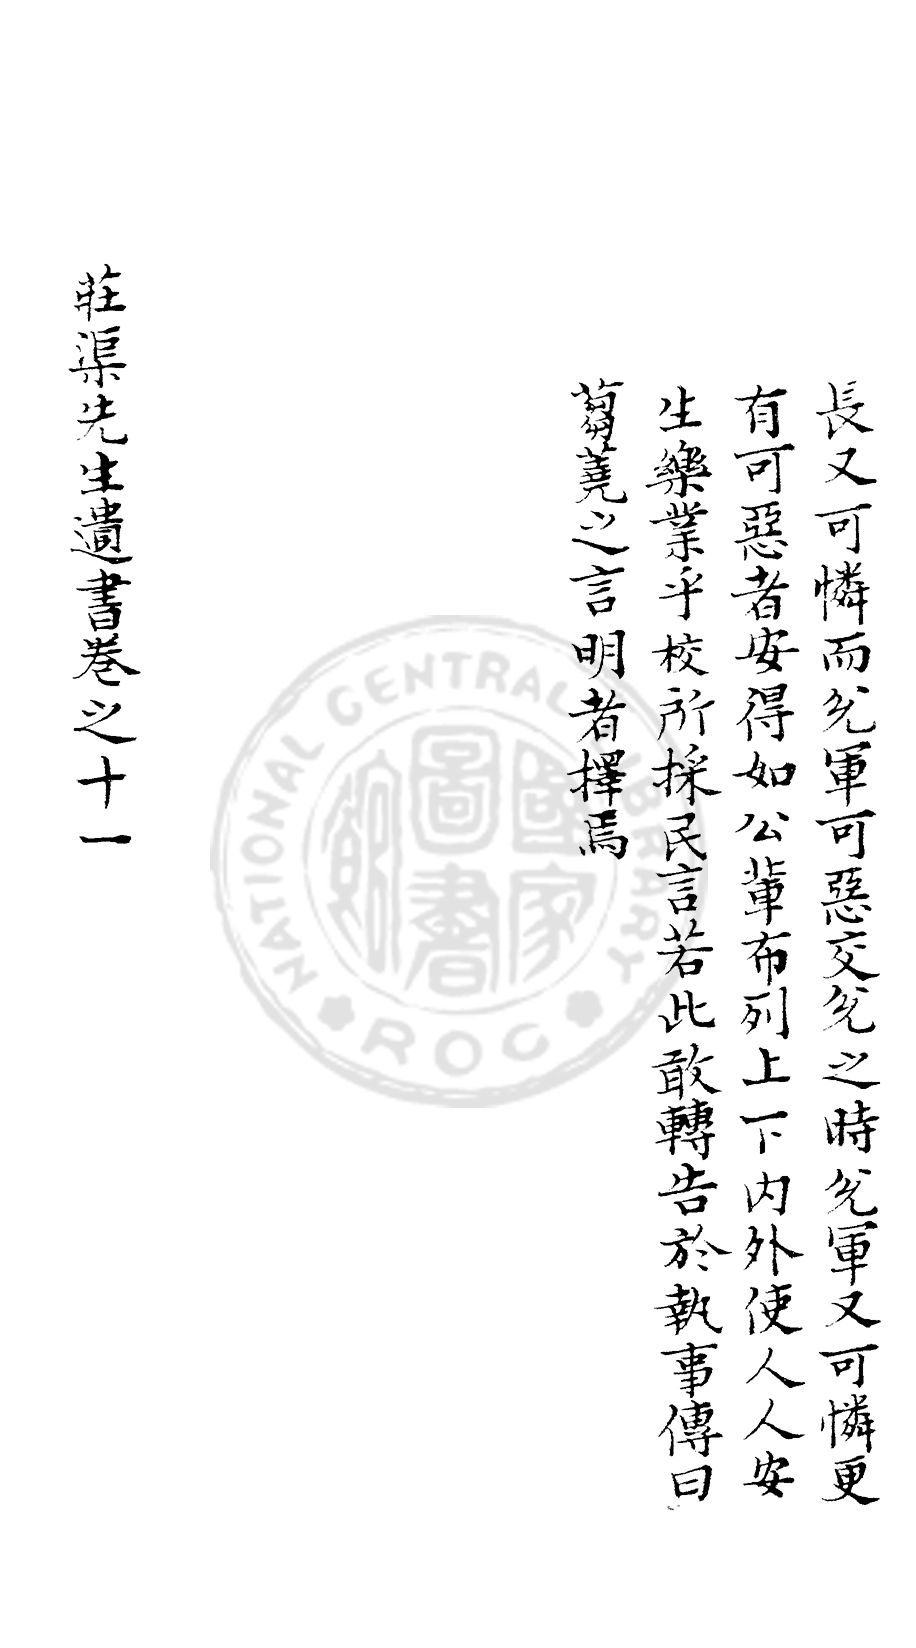 長又可憐而兊軍可惡交兊之時兊軍又可憐更
有可惡者安得如公輩布列上下内外使人人安
生樂業乎校所採民言若此敢轉告於執事傳曰
蒭蕘之言明者擇焉
莊渠先生遺書卷之十一
NATIONAL CENTRAL LIBRARY
ROC
國家圖書館